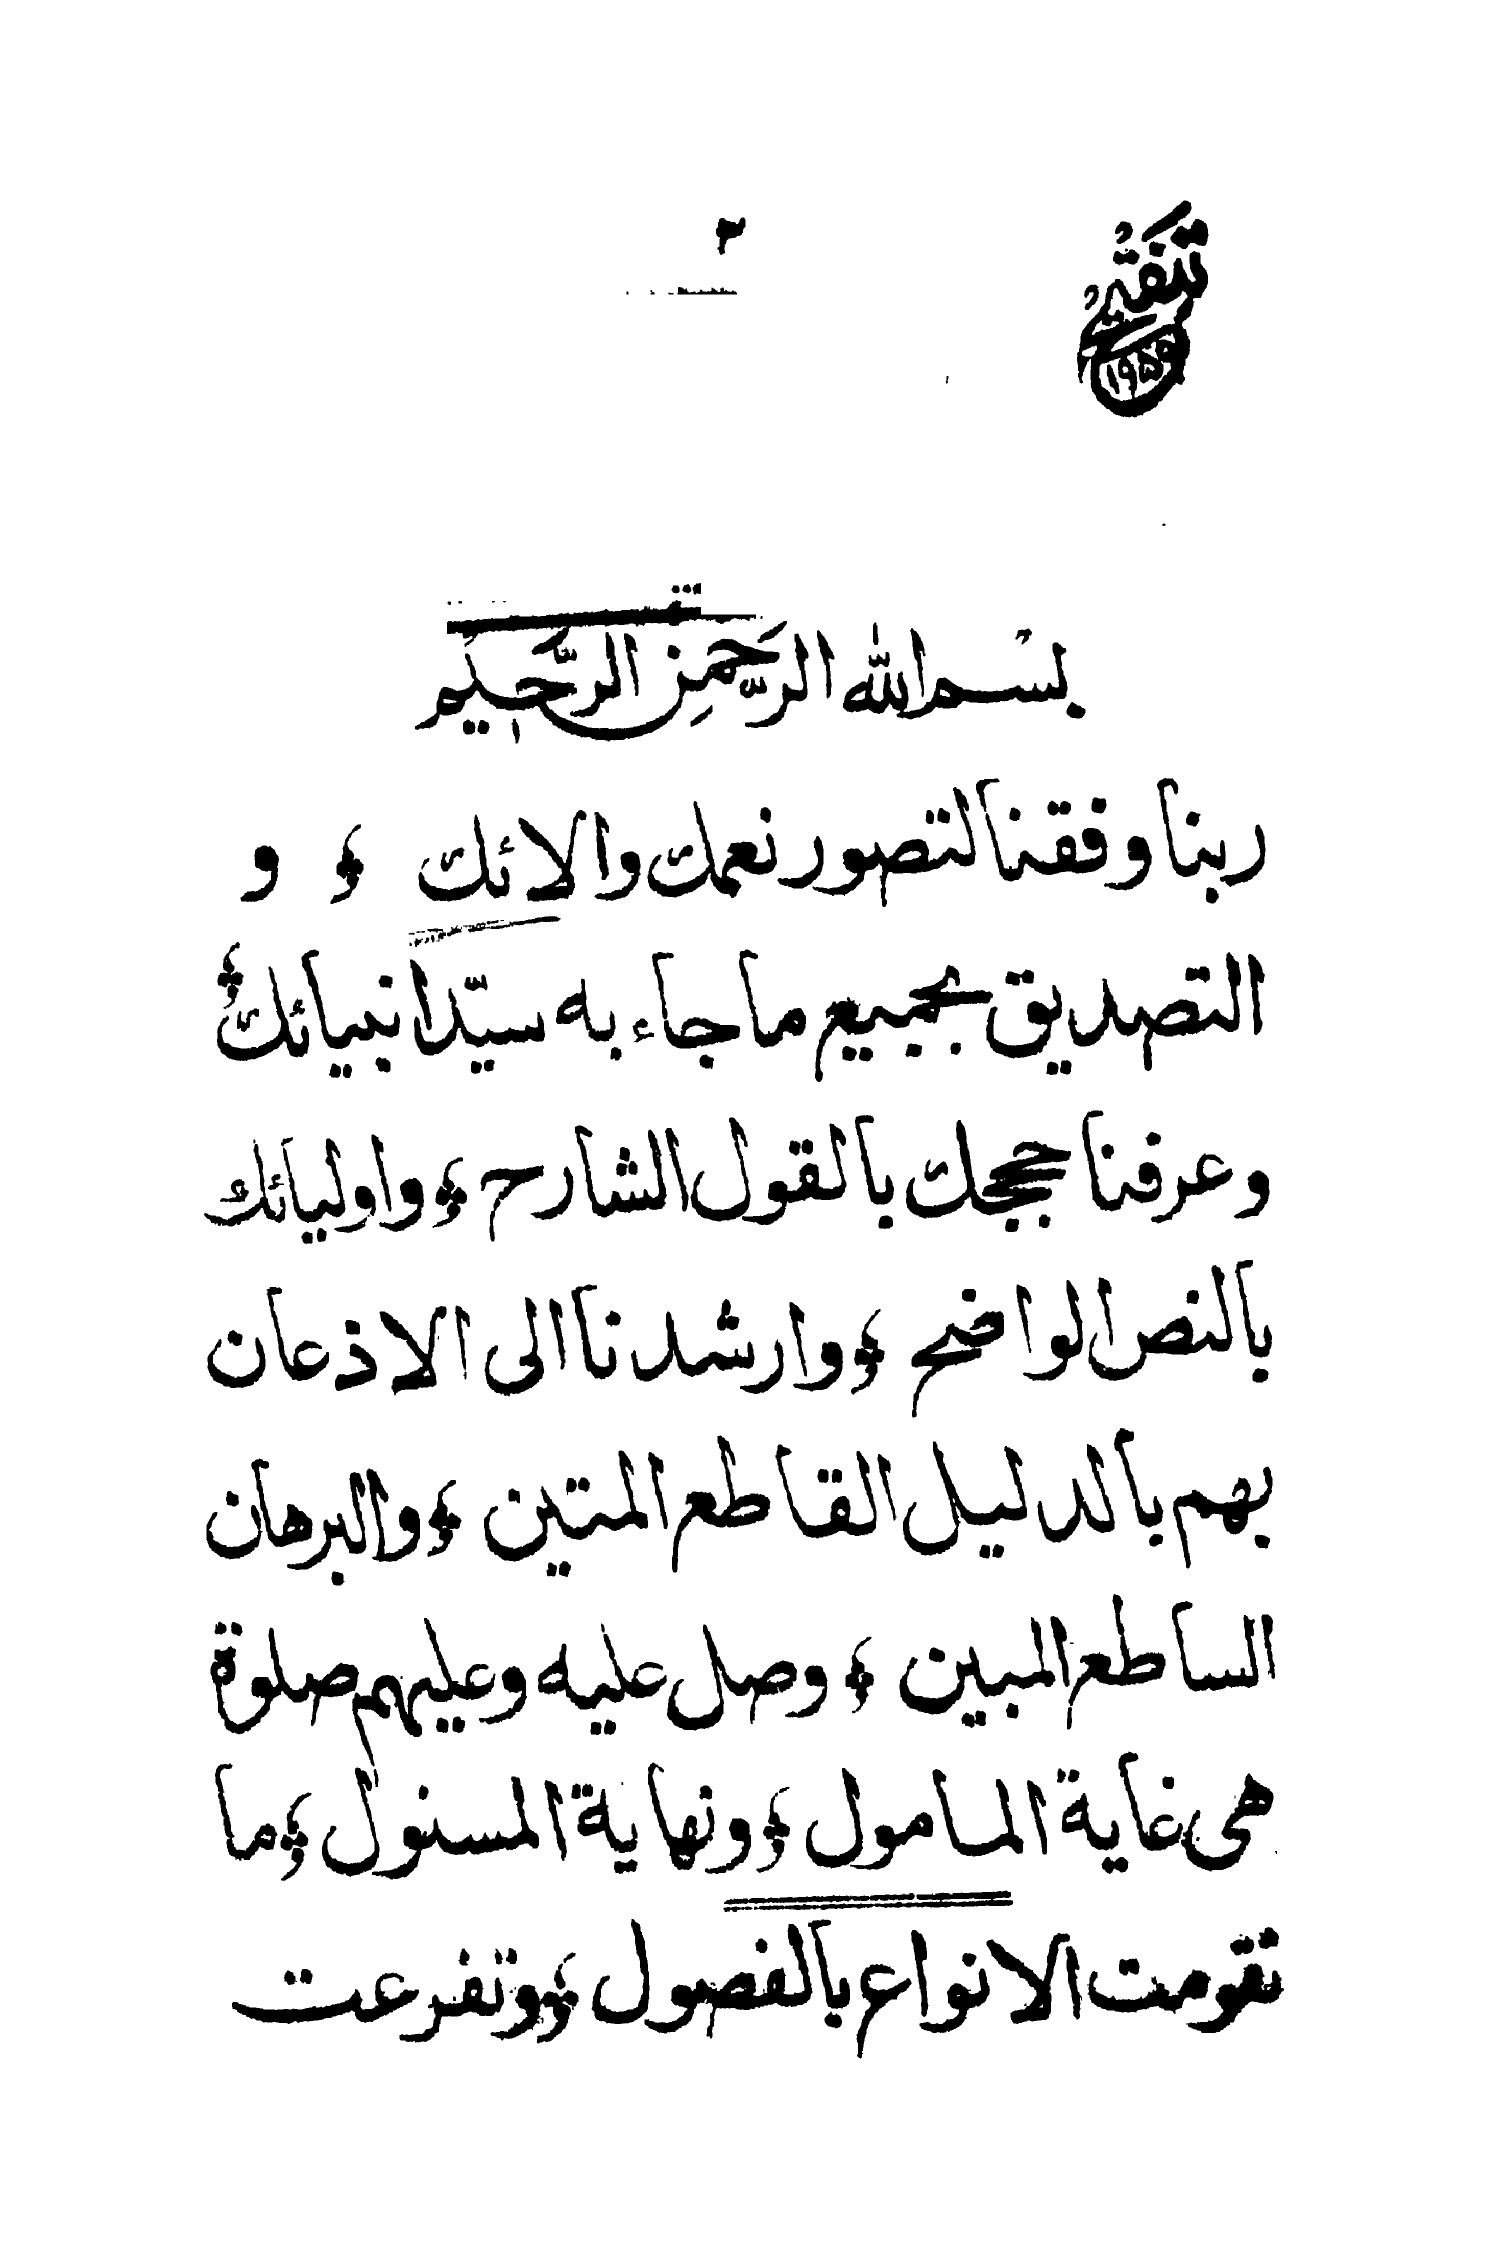 ٣
تنقيح
١٩٥٩
بسم الله الرَّحمنِ الرَّحيم
ربنا وفقنا لتصور نعمك والائك ؛ و
التصديق بجميع ما جاء به سيّد انبيائك ؛
وعرفنا حججك بالقول الشارح ؛ واوليائك
بالنص الواضح ؛ وارشدنا الى الاذعان
بهم بالدليل القاطع المتين ؛ والبرهان
الساطع المبين ؛ وصل عليه وعليهم صلوة
هى غاية المامول ؛ ونهاية المسئول ؛ ما
تقومت الانواع بالفصول ؛ وتفرعت